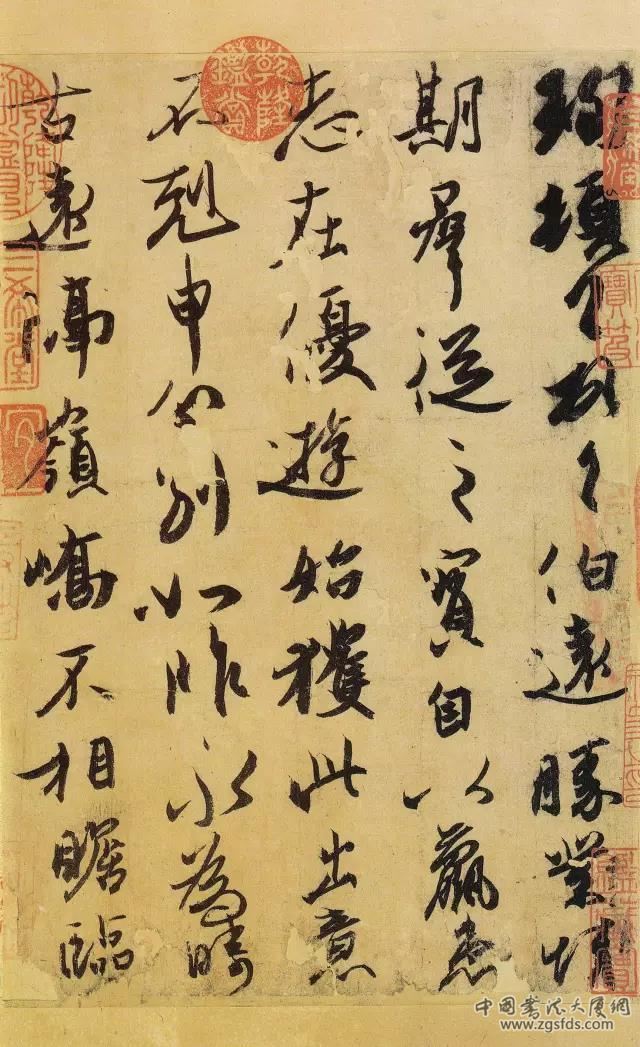 珣頓首頓首伯遠勝業情
期羣從之寶自以羸患
志在優遊始獲此出意
不剋申分別如昨永為疇
古遠隔嶺嶠不相瞻臨
乾隆鑑賞
中國書法大厦網
www.zgsfds.com